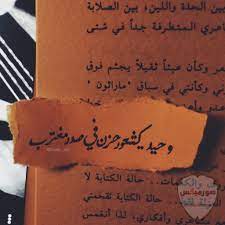 بين الحدة واللين، بين الصلابة
المتطرفة جداً في شتى
وكأن عبئاً ثقيلاً يجثم فوق
وكأنني في سباق "ماراثون"
وحيد كشعور حزن في صدر مغترب
حالة الكتابة
صور ميكس
حالة الكتابة تقحمني
وأفكاري، لذا أنغمس